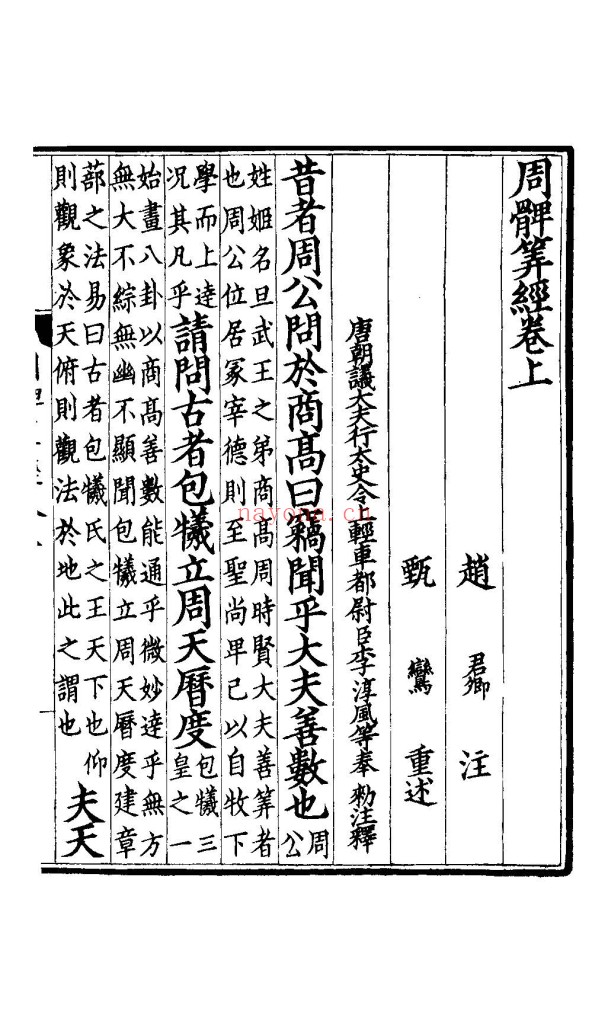 周髀筭經卷上
趙 君卿 注
甄 鸞 重述
唐朝議大夫行太史令上輕車都尉臣李淳風等奉 勑注釋
昔者周公問於商髙曰竊聞乎大夫善數也 周公
姓姬名旦武王之弟商髙周時賢大夫善筭者
也周公位居冢宰德則至聖尚卑己以自牧下
學而上達
况其凡乎
請問古者包犧立周天曆度
包犧三
皇之一
始畫八卦以商髙善數能通乎微妙達乎無方
無大不綜無幽不顯聞包犧立周天曆度建章
蔀之法易曰古者包犧氏之王天下也仰
則觀象於天俯則觀法於地此之謂也
夫天
nayona.cn